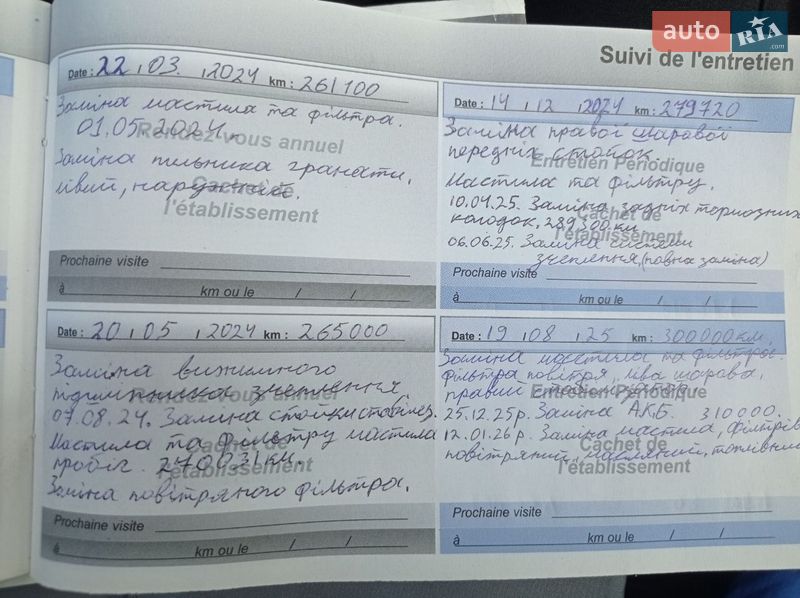 auto RIA .com
Suivi de l'entretien
Date : 22 , 03. , 2024 km : 261100
Заміна мастила та фільтра.
01.05.2024.
Rendez-vous annuel
Заміна пильника гранати,
лівий, наружний.
Cachet de
l'établissement
Prochaine visite
à km ou le / /
Date : 14 , 12 , 2024 km : 279720
Заміна правої шарової
передніх стоток
Entretien Périodique
Мастила та фільтру.
10.04.25. Заміна, задніх тормозних
колодок, 289300 км
Cachet de
l'établissement
06.06.25. Заміна системи
зчеплення, (повна заміна)
Prochaine visite
à km ou le / /
Date : 20 , 05 , 2024 km : 265000
Заміна вижимного
підшипника зчеплення
Rendez-vous annuel
07.08.24. Заміна стойки стабілиз.
Мастила та фильтру мастила
Cachet de
l'établissement
пробіг. 270031 км.
Заміна повітряного фільтра.
Prochaine visite
à km ou le / /
Date : 19 , 08 , 25 km : 300000 км.
Заміна мастила та фільтрів.
Фільтра повітря, ліва шарова,
правий
Entretien Périodique
25.12.25р. Заміна АКБ. 310000.
12.01.26р. Заміна мастила, фільтрів
Cachet de
l'établissement
повітряний, масляний, топлівний
Prochaine visite
à km ou le / /